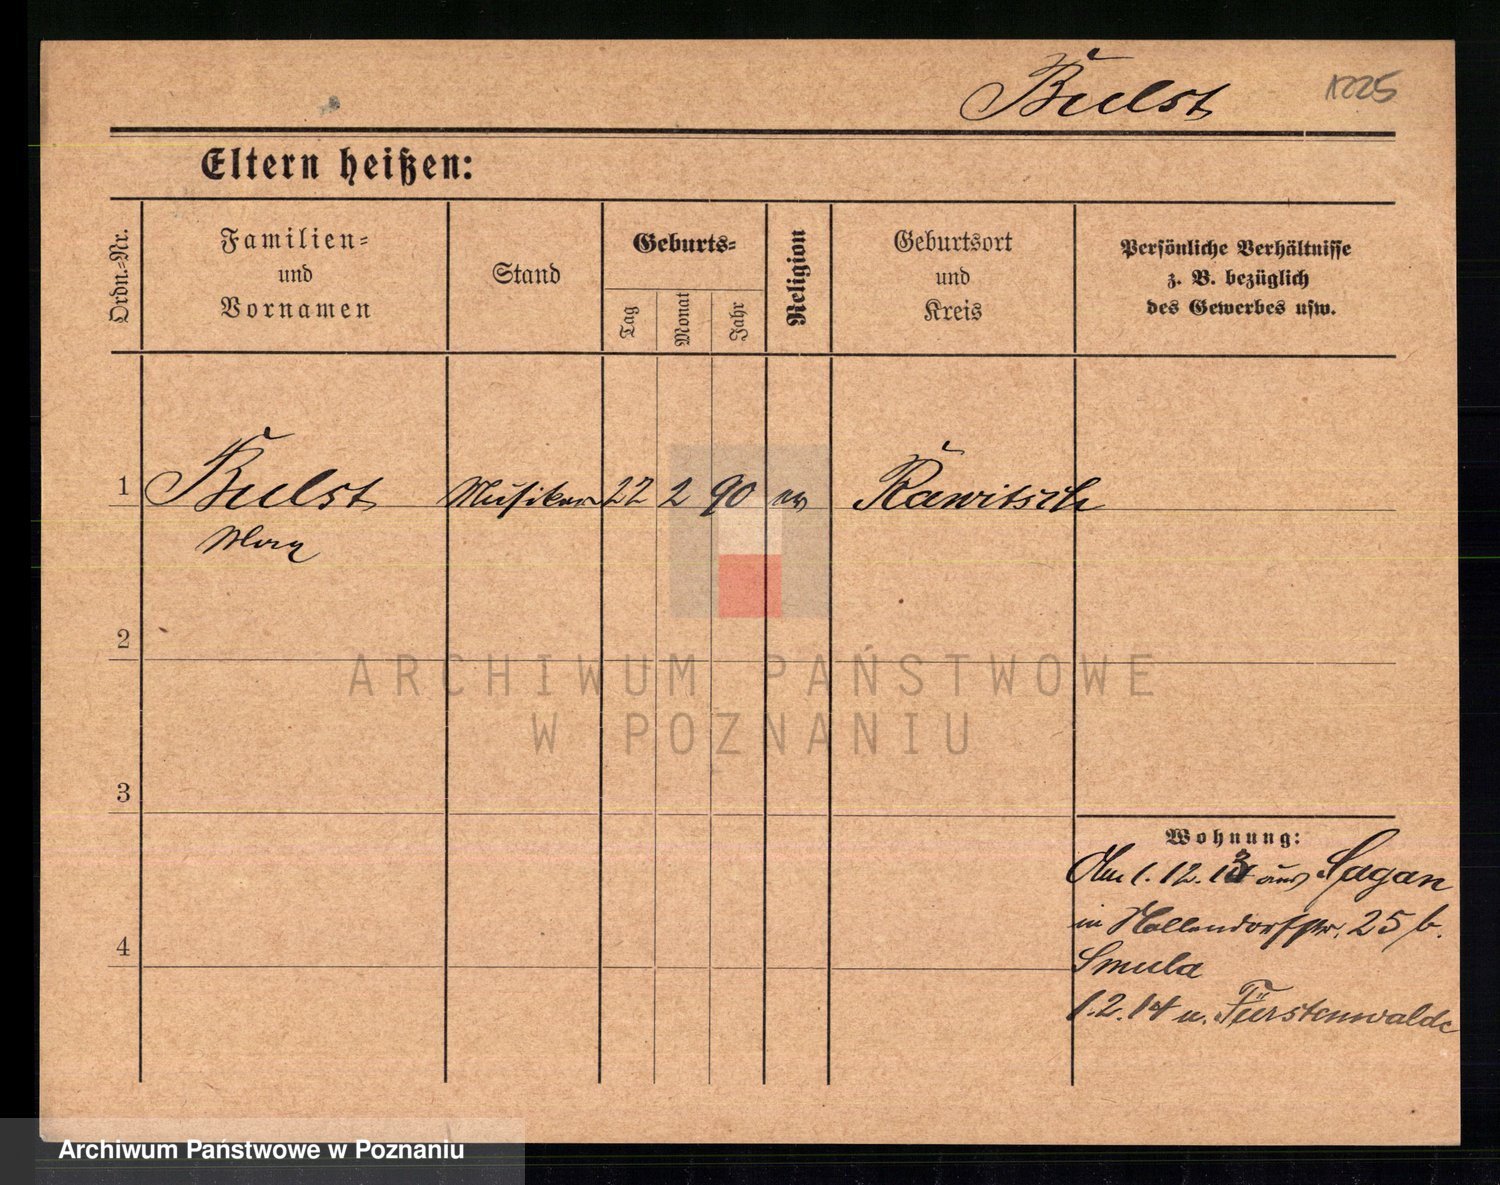 Bulst 1225
Eltern heißen:
Ordn.-Nr.
Familien-
und
Vornamen
Stand
Geburts-
Tag
Monat
Jahr
Religion
Geburtsort
und
Kreis
Persönliche Verhältnisse
z. B. bezüglich
des Gewerbes usw.
1 Bulst Musiker 22 2 90 ev Rawitsch
Max
2
ARCHIWUM PAŃSTWOWE
W POZNANIU
3
Wohnung:
Am 1.12.13 aus Sagan
in Hollendorfstr. 25 b.
Smula
4
1.2.14 n. Fürstenwalde
Archiwum Państwowe w Poznaniu